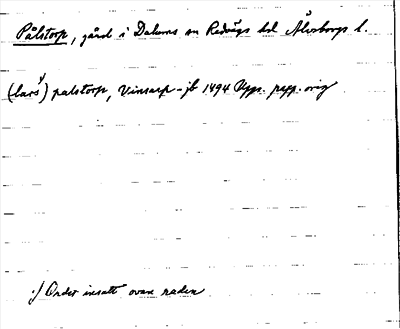 Pålstorp, gård i Dalums sn Redvägs hd Älvsborgs l.
(lars¹) palstorp, Vinsarp-jb 1494 Upps. papp. orig
¹) Ordet insatt ovan raden